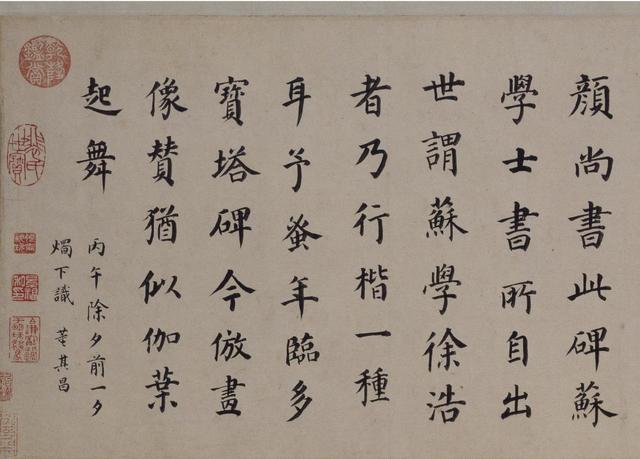 顏尚書此碑蘇
學士書所自出
世謂蘇學徐浩
者乃行楷一種
耳予蚤年臨多
寶塔碑今倣畫
像贊猶似伽葉
起舞
丙午除夕前一夕
燭下識 董其昌
乾隆鑑賞